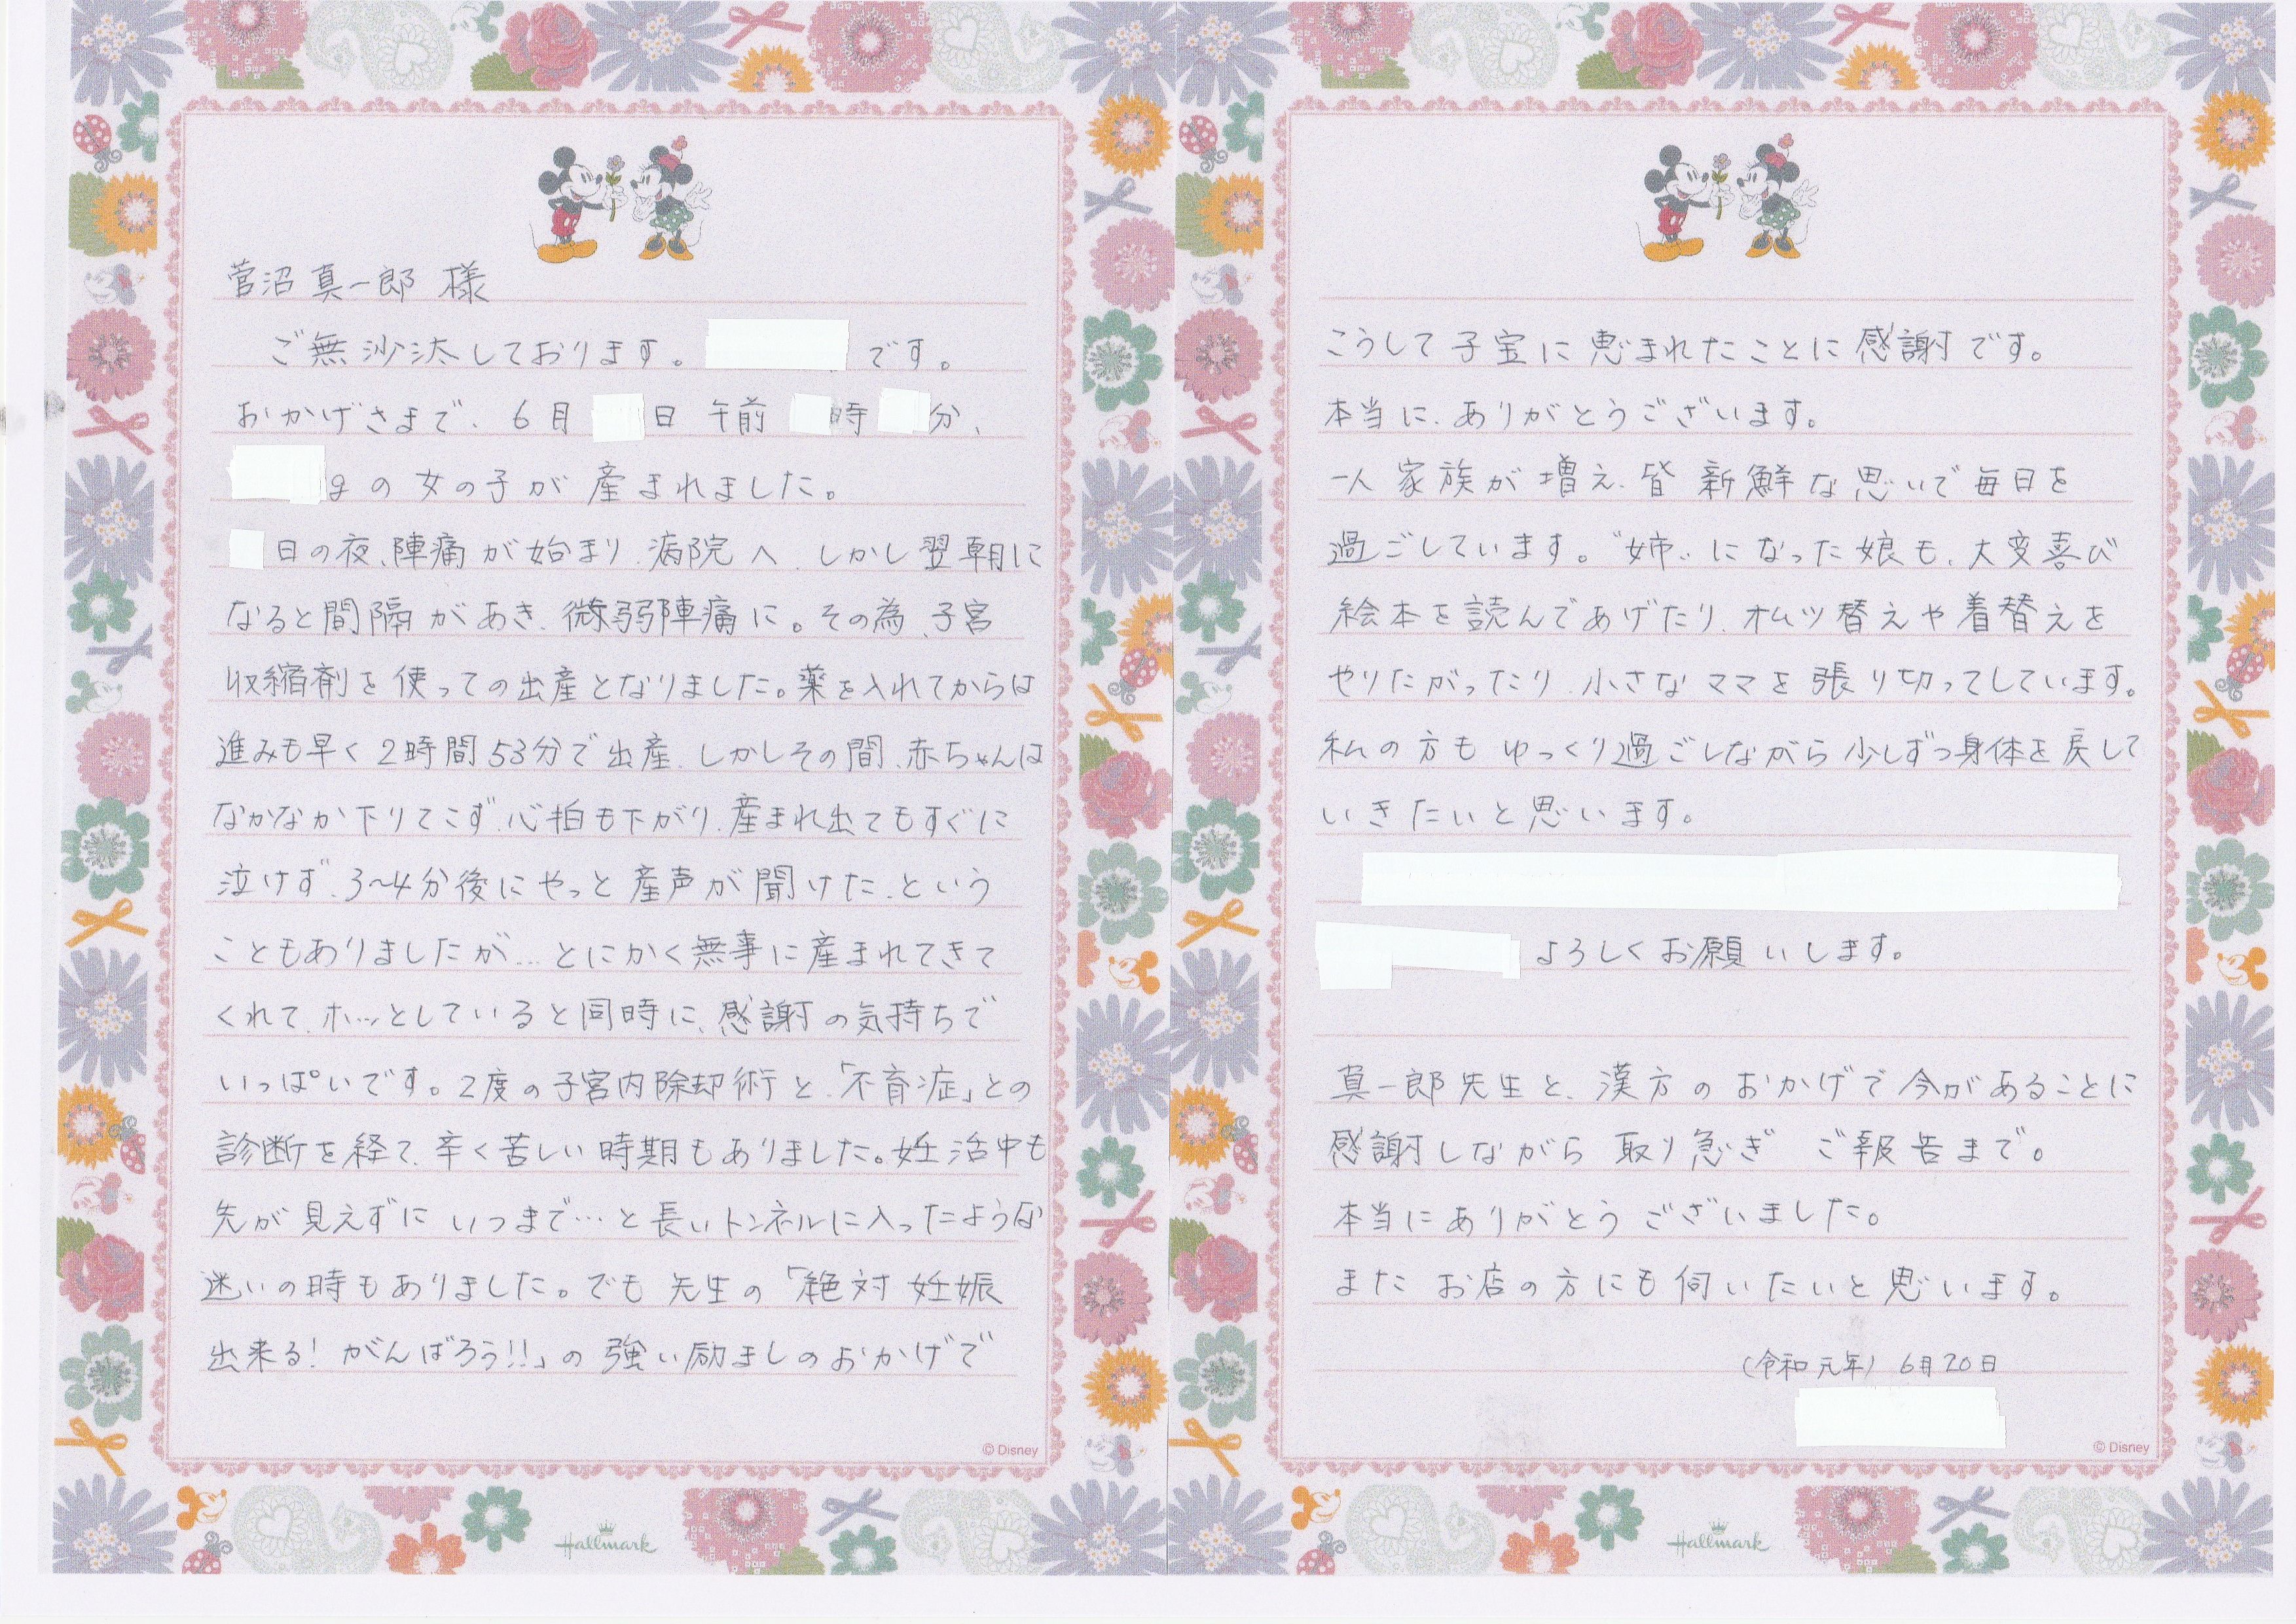 菅沼真一郎 様
ご無沙汰しております。 です。
おかげさまで、6月 日 午前 時 分、
gの女の子が産まれました。
日の夜、陣痛が始まり、病院へ、しかし翌朝に
なると間隔があき、微弱陣痛に。その為、子宮
収縮剤を使っての出産となりました。薬を入れてからは
進みも早く2時間53分で出産、しかしその間、赤ちゃんは
なかなか下りてこず、心拍も下がり、産まれ出てもすぐに
泣けず、3~4分後にやっと産声が聞けた、という
こともありましたが…とにかく無事に産まれてきて
くれて、ホッとしていると同時に、感謝の気持ちで
いっぱいです。2度の子宮内除却術と、「不育症」との
診断を経て、辛く苦しい時期もありました。妊活中も
先が見えずにいつまで…と長いトンネルに入ったような
迷いの時もありました。でも先生の「絶対妊娠
出来る!がんばろう!!」の強い励ましのおかげで
© Disney
Hallmark
こうして子宝に恵まれたことに感謝です。
本当に、ありがとうございます。
一人家族が増え、皆新鮮な思いで毎日を
過ごしています。"姉"になった娘も、大変喜び
絵本を読んであげたり、オムツ替えや着替えを
やりたがったり、小さなママを張り切ってしています。
私の方もゆっくり過ごしながら少しずつ身体を戻して
いきたいと思います。
よろしくお願いします。
真一郎先生と、漢方のおかげで今があることに
感謝しながら取り急ぎ ご報告まで。
本当にありがとうございました。
またお店の方にも伺いたいと思います。
(令和元年) 6月20日
© Disney
Hallmark